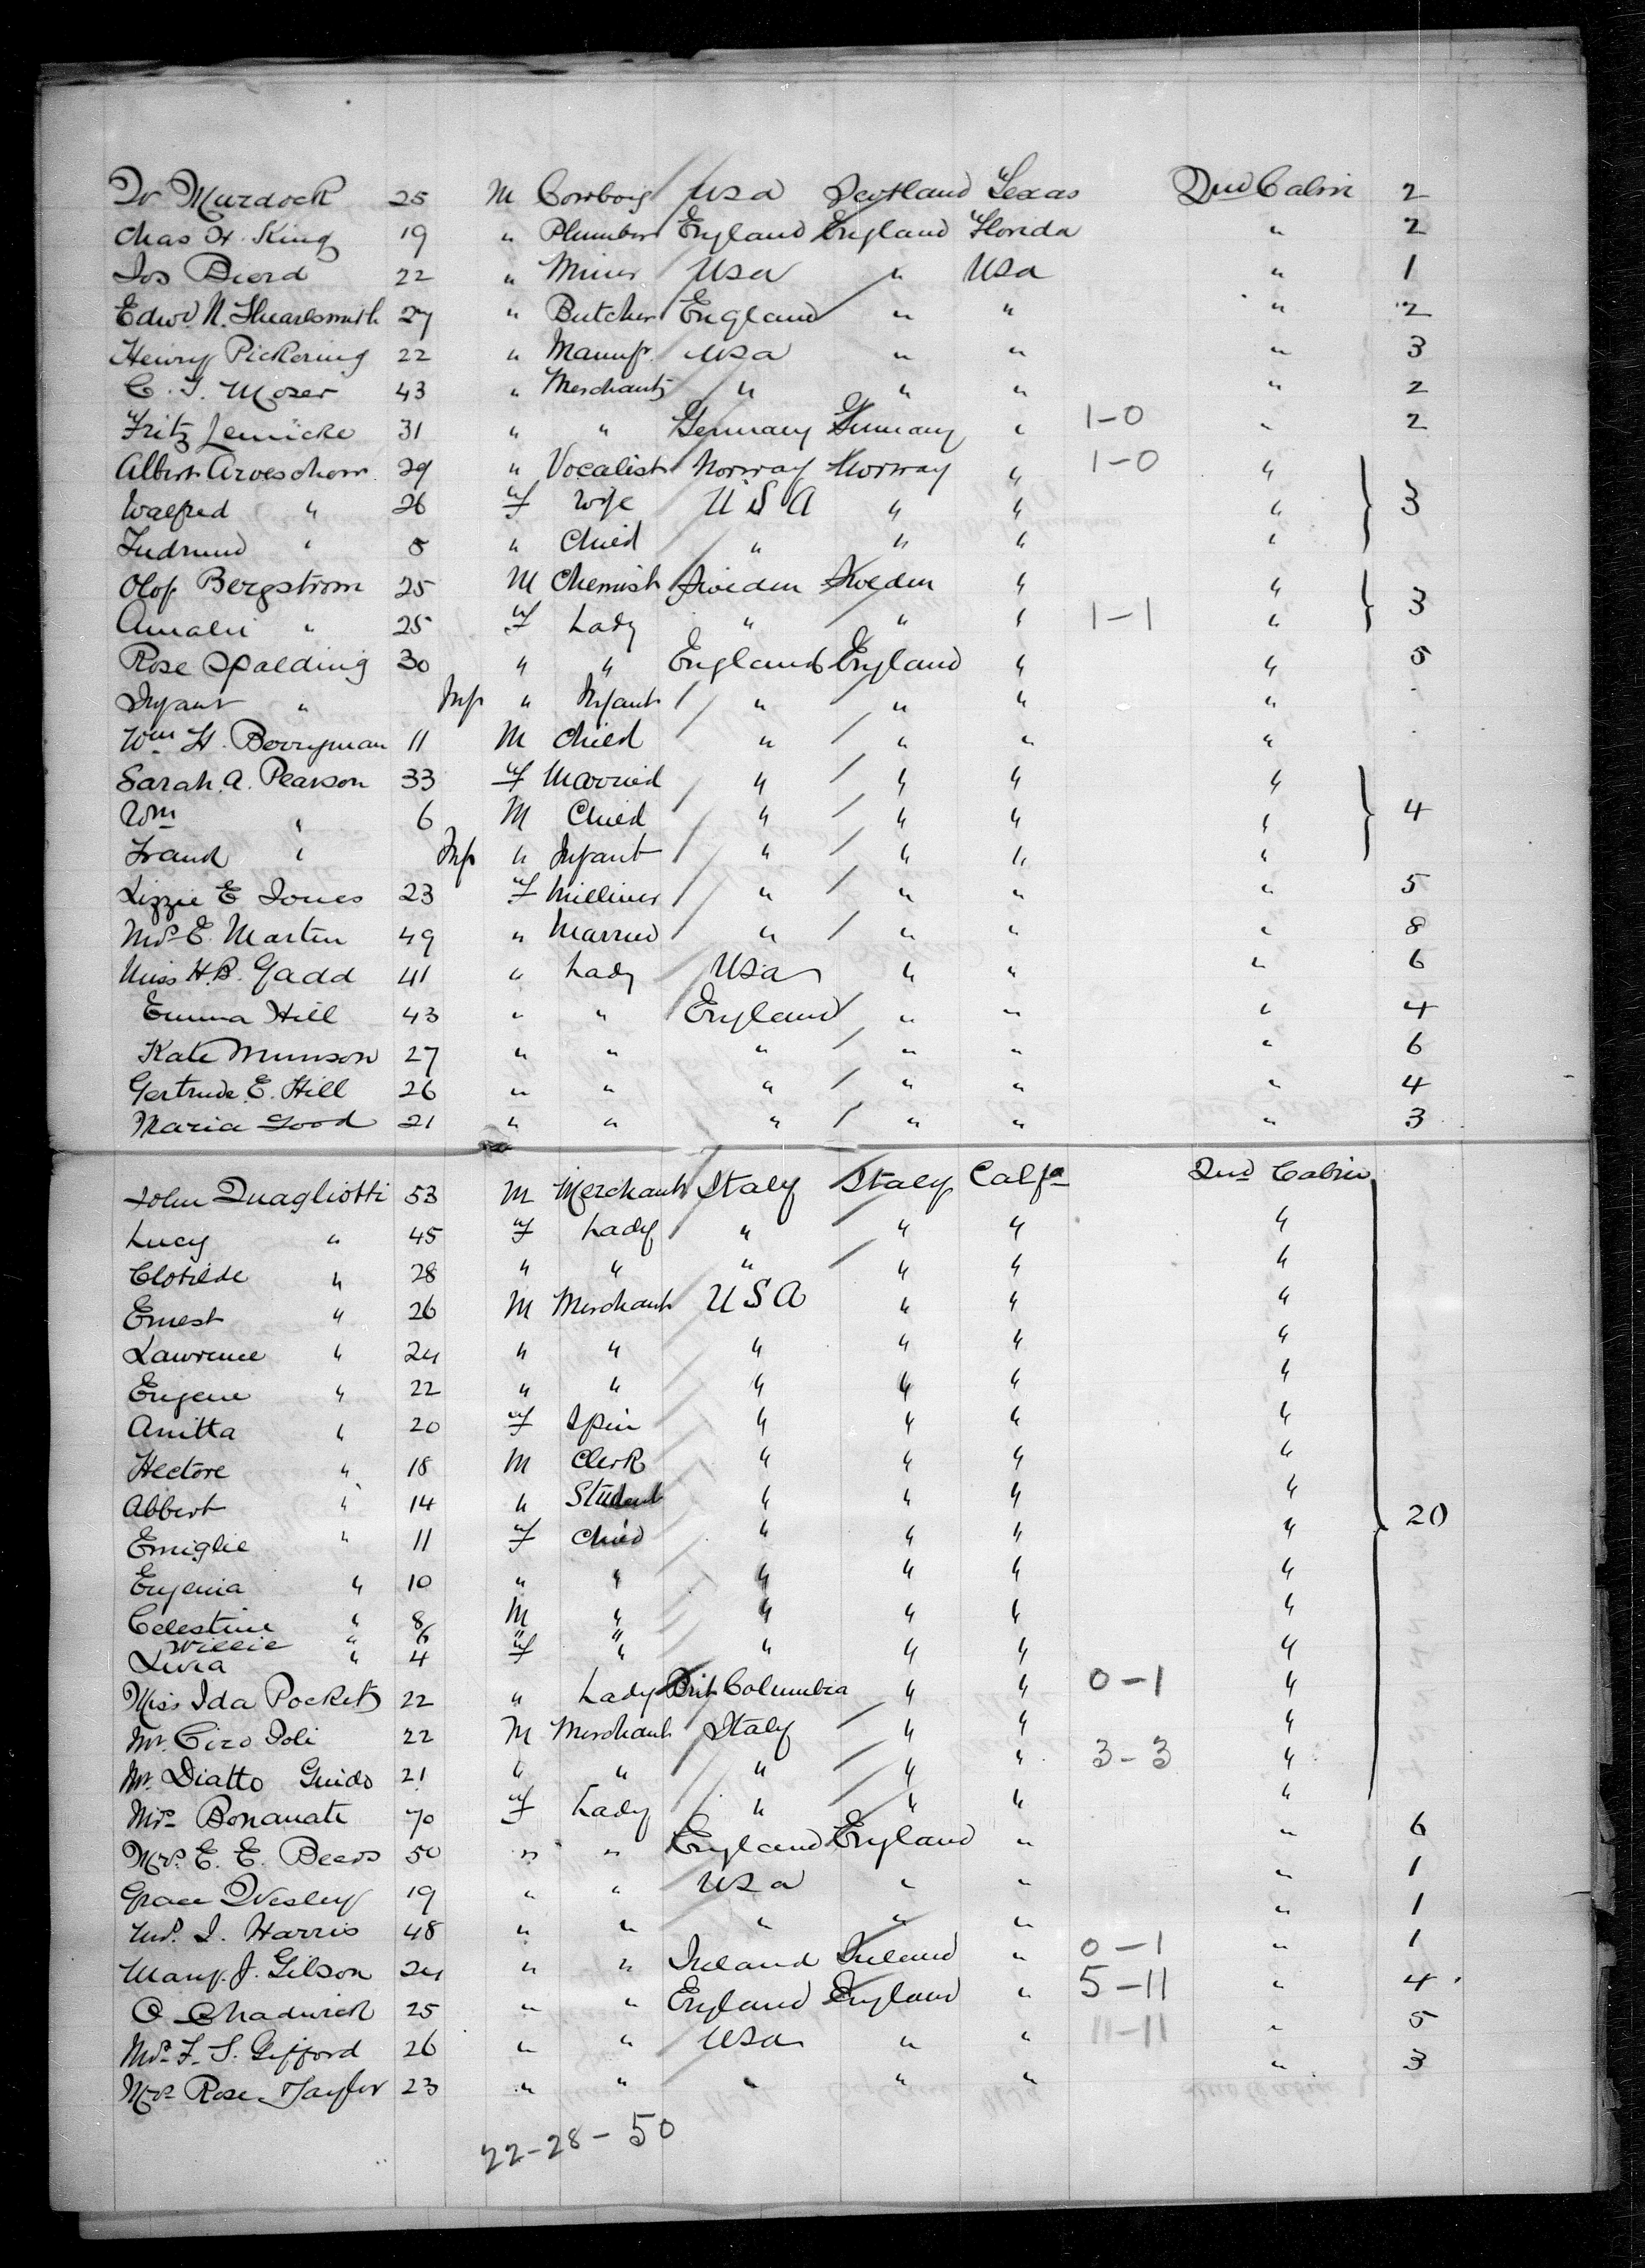 W Murdock 25 M Cowboy USA Scotland Texas 2nd Cabin 2
Chas H. King 19 " Plumber England England Florida " 2
Jos Bierd 22 " Miner USA " USA " 1
Edwd. N. Shearsmith 27 " Butcher England " " " 2
Henry Pickering 22 " Manufr. USA " " " 3
C. J. Moser 43 " Merchant " " " " 2
Fritz Lemicke 31 " " Germany Germany " 1-0 " 2
Albert 29 " Vocalist Norway Norway " 1-0 "
Walfred " 26 f Wife U S A " " " 3
" 5 " Child " " " "
Olof Bergstrom 25 M Chemist Sweden Sweden " "
Amalie " 25 f Lady " " " 1-1 " 3
Rose Spalding 30 " " England England " " 5
Infant " Inf " Infant " " " "
Wm H. Berryman 11 M Child " " " "
Sarah. A. Pearson 33 f Married " " " "
Wm " 6 M Child " " " " 4
Frank " Inf " Infant " " " "
Lizzie E Jones 23 f Milliner " " " " 5
Mrs E. Martin 49 " Married " " " " 8
Miss H.B. Gadd 41 " Lady USA " " " 6
Emma Hill 43 " " England " " " 4
Kate Munson 27 " " " " " " 6
Gertrude. E. Hill 26 " " " " " " 4
Maria Good 21 " " " " " " 3
John Quagliotti 53 M Merchant Italy Italy Calfa 2nd Cabin
Lucy " 45 f Lady " " " "
Clotilde " 28 " " " " " "
Ernest " 26 M Merchant U S A " " "
Lawrence " 24 " " " " " "
Eugene " 22 " " " " " "
Anitta " 20 f Spin " " " "
Hectore " 18 M Clerk " " " "
Abbert " 14 " Student " " " "
Emiglie " 11 f Child " " " " 20
Eugenia " 10 " " " " " "
Celestine " 8 M " " " " "
Willie " 6 " "
Livia " 4 f " " " " "
Miss Ida Pocket 22 " Lady Brit Columbia " " 0-1 "
Mr. Ciro Ioli 22 M Merchant Italy " " "
Mr. Diatto Guido 21 " " " " " 3-3 "
Mrs Bonanate 70 f Lady " " " "
Mrs. E. E. Beers 50 " " England England " " 6
Grace Wesley 19 " " USA " " " 1
Mrs. I. Harris 48 " " " " " " 1
Mary. J. Gilson 24 " " Ireland Ireland " 0-1 " 1
O Chadwick 25 " " England England " 5-11 " 4
Mrs F. S. Gifford 26 " " USA " " 11-11 " 5
Mrs Rose Taylor 23 " " " " " " 3
22-28-50